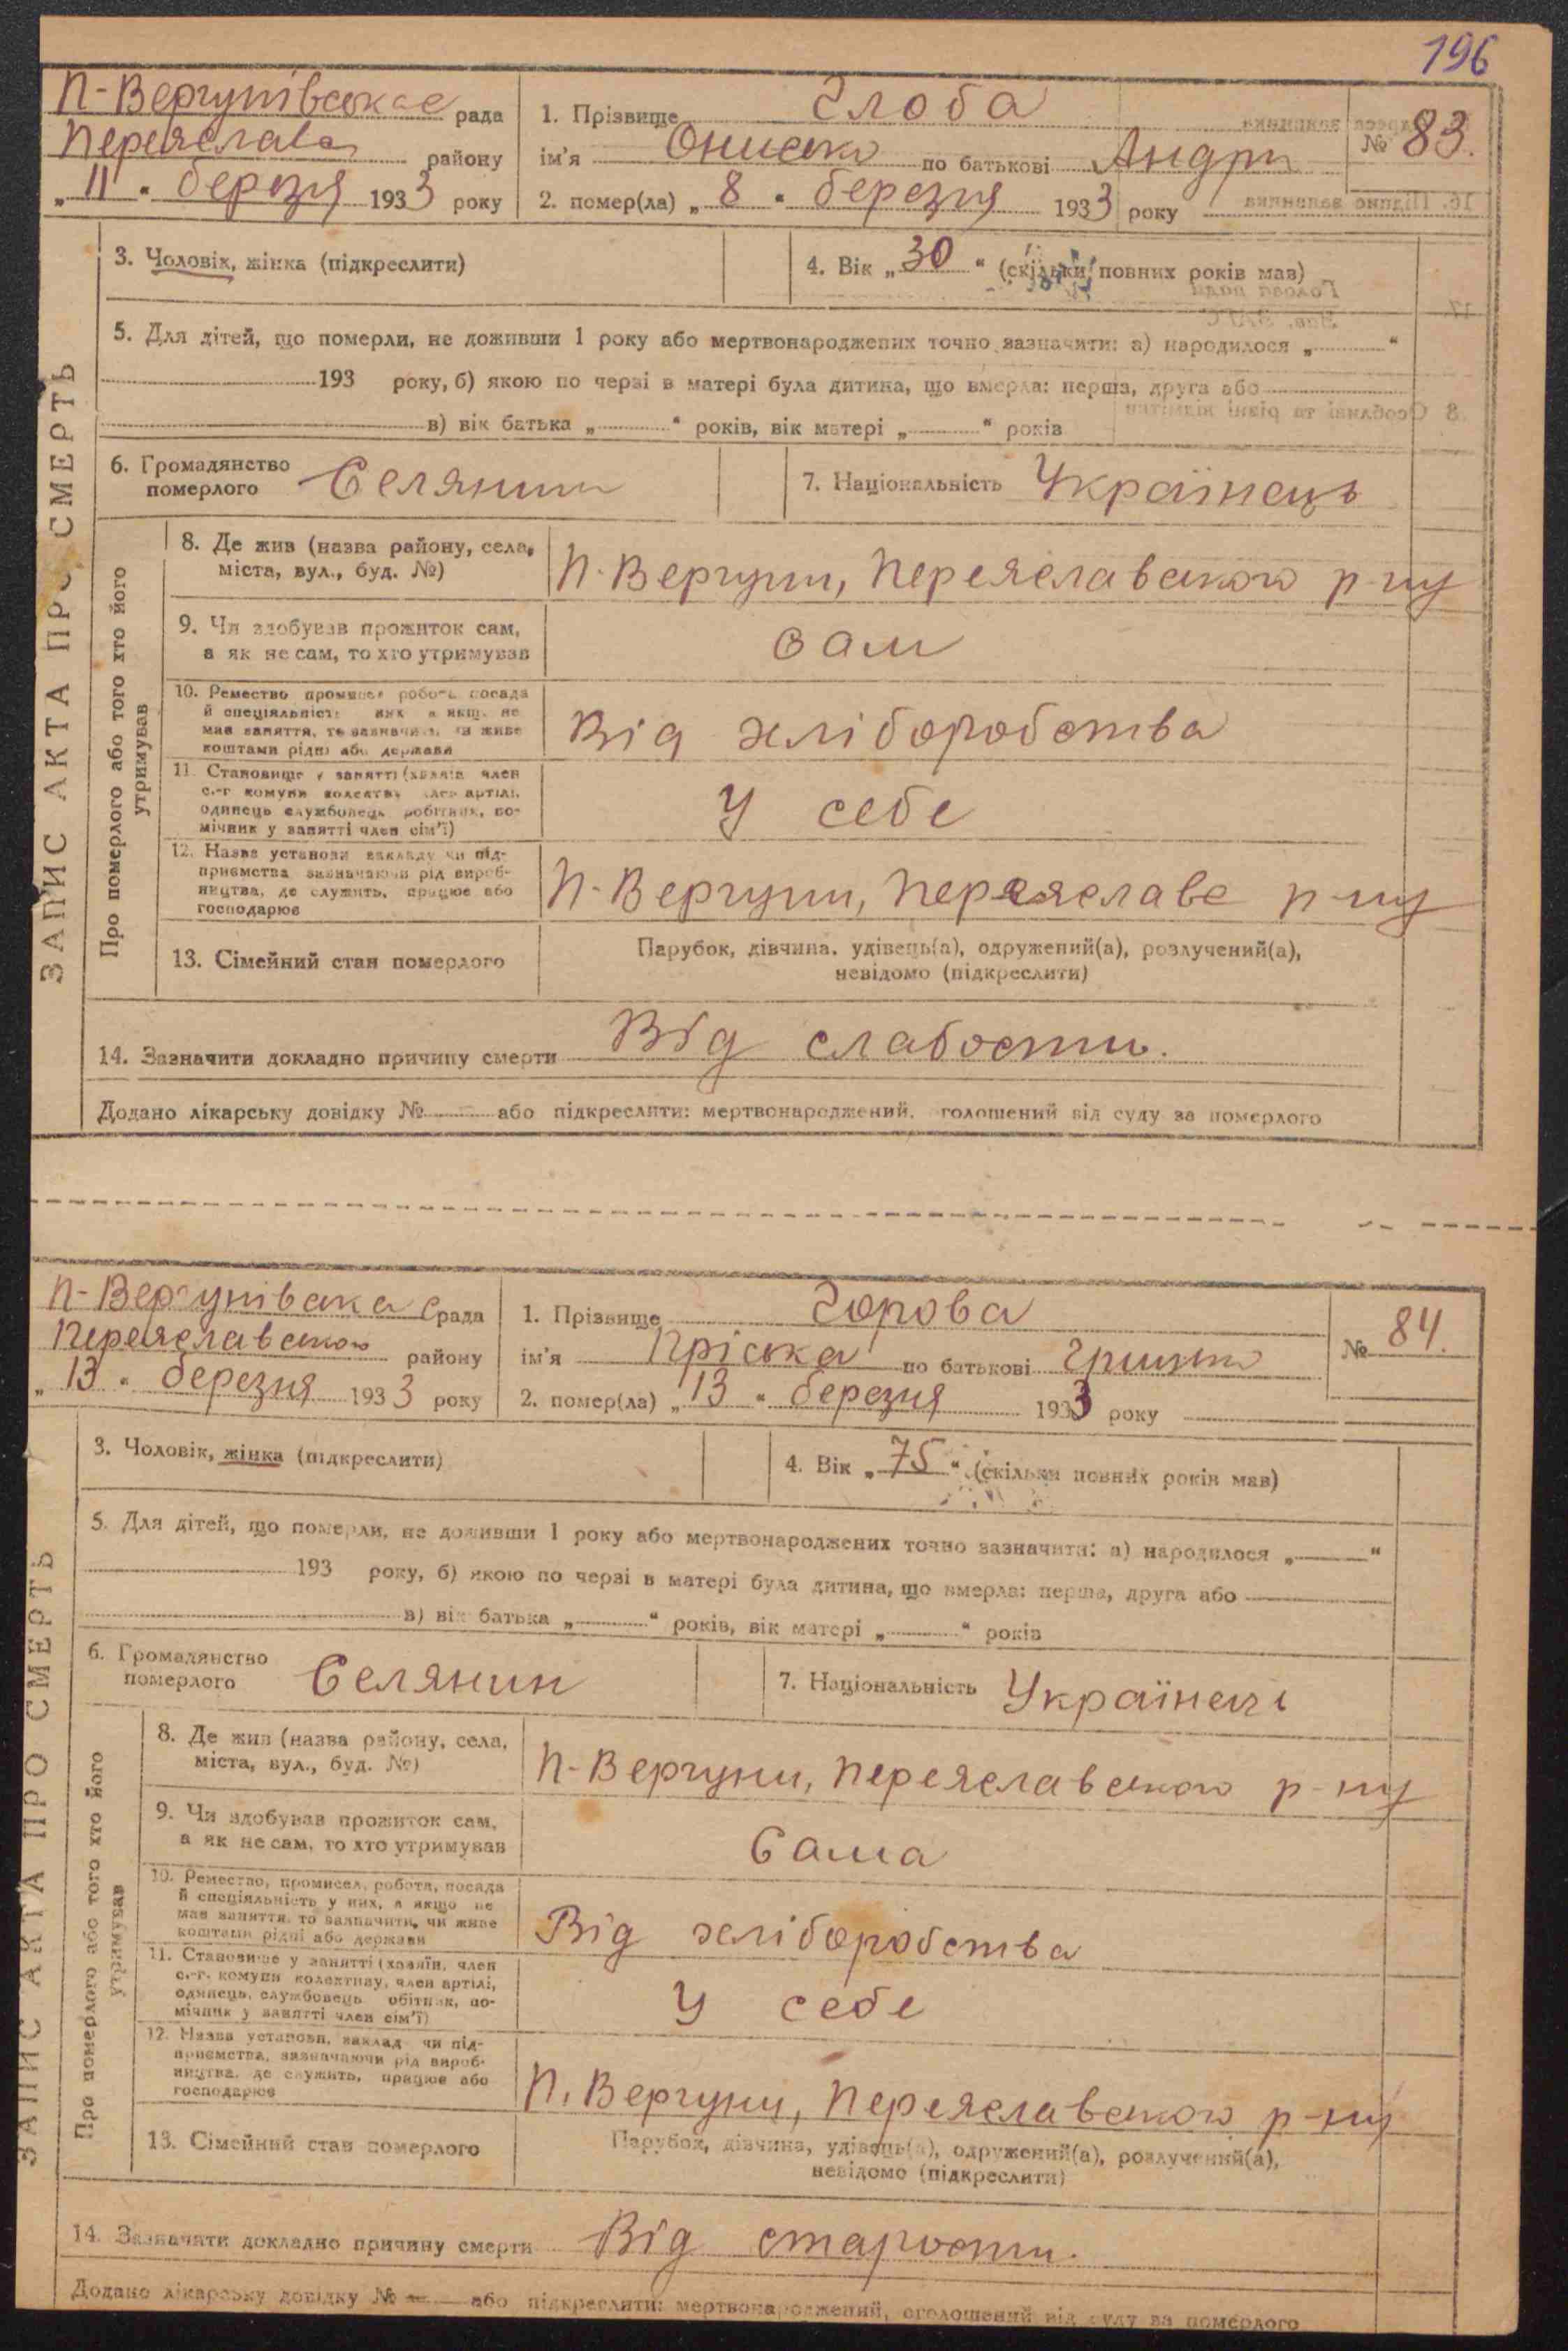 196
П-Вергунівське рада
Переяслав району
„11“ березня 1933 року
1. Прізвище Глоба
ім'я Онисько по батькові Андрія
2. помер(ла) „8“ березня 1933 року
№ 83.
3. Чоловік, жінка (підкреслити)
4. Вік „30“ (скільки повних років мав)
5. Для дітей, що померли, не доживши 1 року або мертвонароджених точно зазначити: а) народилося „ “
193 року, б) якою по черзі в матері була дитина, що вмерла: перша, друга або
в) вік батька „ “ років, вік матері „ “ років
6. Громадянство померлого Селянин
7. Національність Українець
ЗАПИС АКТА ПРО СМЕРТЬ
Про померлого або того хто його утримував
8. Де жив (назва району, села,
міста, вул., буд. №)
П-Вергуни, Переяславського р-ну
9. Чи здобував прожиток сам,
а як не сам, то хто утримував
Сам
10. Ремество промисел робота посада
й спеціяльність них а якщо не
має заняття, то зазначити, чи живе
коштами рідні або держави
Від хліборобства
11. Становище у занятті (хазяїн член
с.-г комуни колективу член артілі,
одинець службовець робітник, по-
мічник у занятті член сім'ї)
У себе
12. Назва установи закладу чи під-
приємства зазначаючи рід вироб-
ництва, де служить, працює або
господарює
П-Вергуни, Переяславс р-ну
13. Сімейний стан померлого
Парубок, дівчина, удівець(а), одружений(а), розлучений(а),
невідомо (підкреслити)
14. Зазначити докладно причину смерти Від слабости.
Додано лікарську довідку № або підкреслити: мертвонароджений, оголошений від суду за померлого
П-Вергунівська рада
Переяславського району
„13“ березня 1933 року
1. Прізвище Горова
ім'я Пріська по батькові Грицько
2. помер(ла) „13“ березня 1933 року
№ 84.
3. Чоловік, жінка (підкреслити)
4. Вік „75“ (скільки повних років мав)
5. Для дітей, що померли, не доживши 1 року або мертвонароджених точно зазначити: а) народилося „ “
193 року, б) якою по черзі в матері була дитина, що вмерла: перша, друга або
в) вік батька „ “ років, вік матері „ “ років
6. Громадянство померлого Селянин
7. Національність Українець
ЗАПИС АКТА ПРО СМЕРТЬ
Про померлого або того хто його утримував
8. Де жив (назва району, села,
міста, вул., буд. №)
П-Вергуни, Переяславського р-ну
9. Чи здобував прожиток сам,
а як не сам, то хто утримував
Сама
10. Ремество, промисел, робота, посада
й спеціяльність у них, а якщо не
має заняття, то зазначити, чи живе
коштами рідні або держави
Від хліборобства
11. Становище у занятті (хазяїн, член
с.-г. комуни колективу, член артілі,
одинець, службовець робітник, по-
мічник у занятті член сім'ї)
У себе
12. Назва установи, заклад чи під-
приємства, зазначаючи рід вироб-
ництва, де служить, працює або
господарює
П. Вергуни, Переяславського р-ну
13. Сімейний стан померлого
Парубок, дівчина, удівець(а), одружений(а), розлучений(а),
невідомо (підкреслити)
14. Зазначити докладно причину смерти Від старости.
Додано лікарську довідку № або підкреслити: мертвонароджений, оголошений від суду за померлого